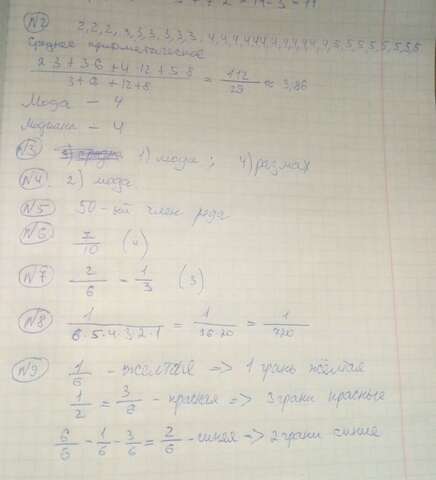 №2
2,2,2,3,3,3,3,3,3,4,4,4,4,4,4,4,4,4,4,4,4,5,5,5,5,5,5,5,5
Среднее арифметическое
2·3 + 3·6 + 4·12 + 5·8 / 3+6+12+8 = 112/29 ≈ 3,86
Мода – 4
Медиана – 4
№3 1) мода ; 4) размах
№4 2) мода
№5 50-ый член ряда
№6 7/10 (4)
№7 2/6 = 1/3 (3)
№8 1/6·5·4·3·2·1 = 1/36·20 = 1/720
№9 1/6 - жёлтая => 1 грань жёлтая
1/2 = 3/6 - красная => 3 грани красные
6/6 - 1/6 - 3/6 = 2/6 - синяя => 2 грани синие